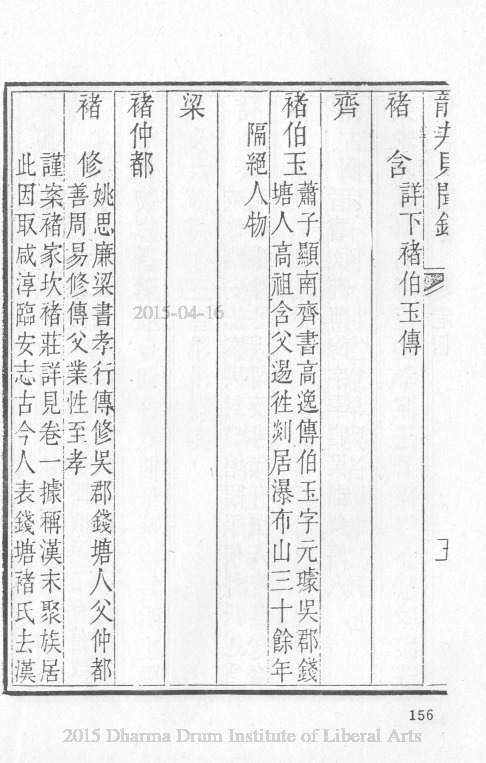 龍井見聞錄
褚　含　詳下褚伯玉傳
齊
褚伯玉　蕭子顯南齊書高逸傳伯玉字元璩吳郡錢
塘人高祖含父逷徃剡居瀑布山三十餘年
隔絕人物
梁
褚仲都
褚　修　姚思廉梁書孝行傳修吳郡錢塘人父仲都
善周易修傳父業性至孝
謹案褚家坎褚莊詳見卷一據稱漢末聚族居
此因取咸淳臨安志古今人表錢塘褚氏去漢
2015-04-16
156
2015 Dharma Drum Institute of Liberal Arts